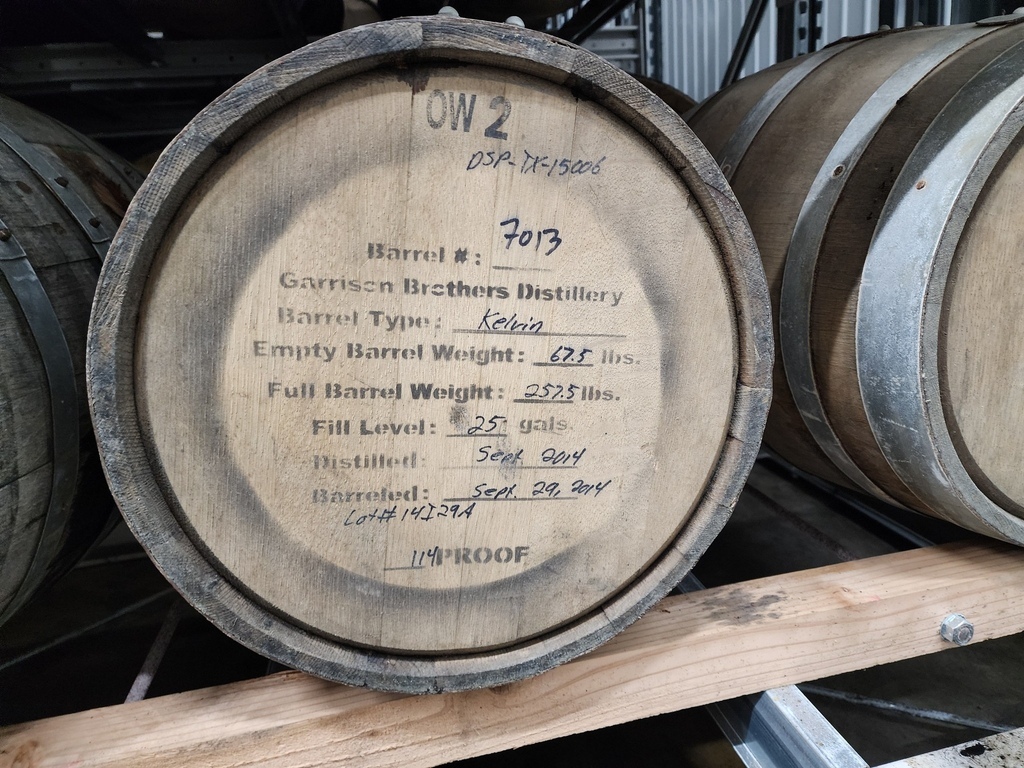 OW 2
DSP-TX-15006
Barrel #: 7013
Garrison Brothers Distillery
Barrel Type: Kelvin
Empty Barrel Weight: 67.5 lbs.
Full Barrel Weight: 257.5 lbs.
Fill Level: 25 gals.
Distilled: Sept. 2014
Barreled: Sept. 29, 2014
Lot# 14I29A
114 PROOF